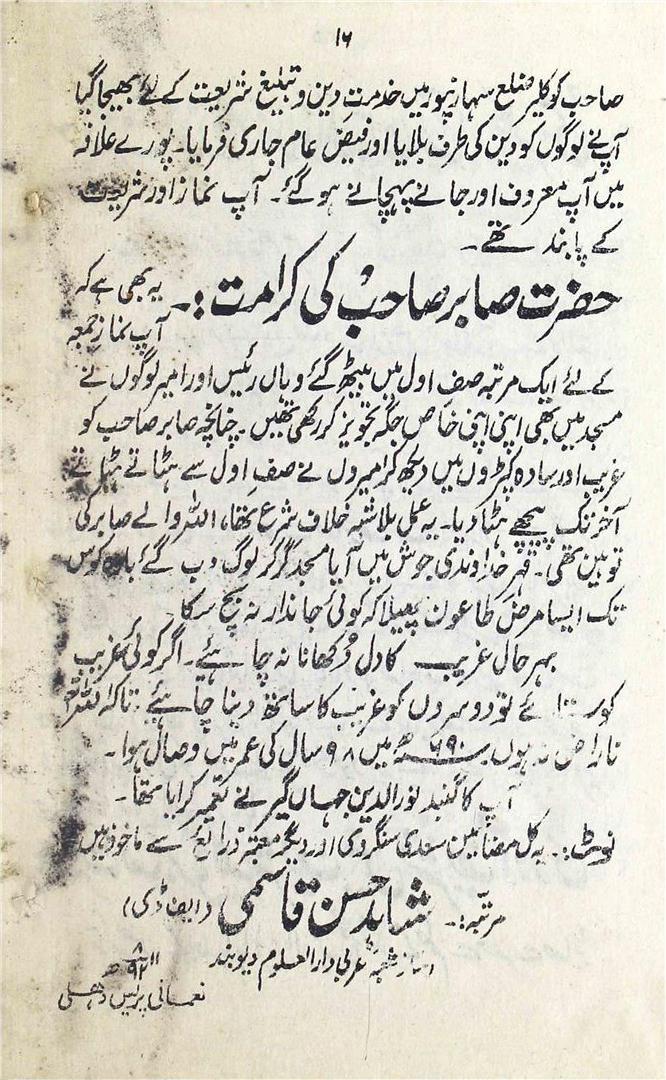 ۱۶
صاحب کو کلیر ضلع سہارنپور میں خدمتِ دین و تبلیغ شریعت کے لئے بھیجا گیا
آپ نے لوگوں کو دین کی طرف بلایا اور فیض عام جاری فرمایا۔ پورے علاقہ
میں آپ معروف اور جانے پہچانے ہو گئے۔ آپ نماز اور شریعت
کے پابند تھے۔
حضرت صابر صاحبؒ کی کرامت :۔ یہ بھی ہے کہ
آپ نماز جمعہ
کے لئے ایک مرتبہ صفِ اول میں بیٹھ گئے وہاں رئیس اور امیر لوگوں نے
مسجد میں بھی اپنی اپنی خاص جگہ تجویز کر رکھی تھیں۔ چنانچہ صابر صاحب کو
غریب اور سادہ کپڑوں میں دیکھ کر امیروں نے صفِ اول سے ہٹاتے ہٹاتے
آخر تک پیچھے ہٹا دیا۔ یہ عمل بلاشبہ خلاف شرع تھا، اللہ والے صابر کی
توہین تھی۔ قہر خداوندی جوش میں آیا مسجد گر کر لوگ دب گئے بارہ کوس
تک ایسا مرض طاعون پھیلا کہ کوئی جاندار نہ بچ سکا۔
بہر حال غریب کا دل دُکھانا نہ چاہئے۔ اگر کوئی غریب
کو ستائے تو دوسروں کو غریب کا ساتھ دینا چاہئے۔ تاکہ اللہ
ناراض نہ ہوں ۶۹۰ھ میں ۹۸ سال کی عمر میں وصال ہوا۔
آپ کا گنبد نور الدین جہاں گیر نے تعمیر کرایا تھا۔
نوٹ :۔ یہ کل مضامین سندی سنگردی اور دیگر معتبر ذرائع سے ماخوذ ہیں
مرتّبہ :۔ شاہد حسن قاسمی (ایف ڈی)
استاز شعبہ عربی دار العلوم دیوبند
نعمانی پریس دھلی